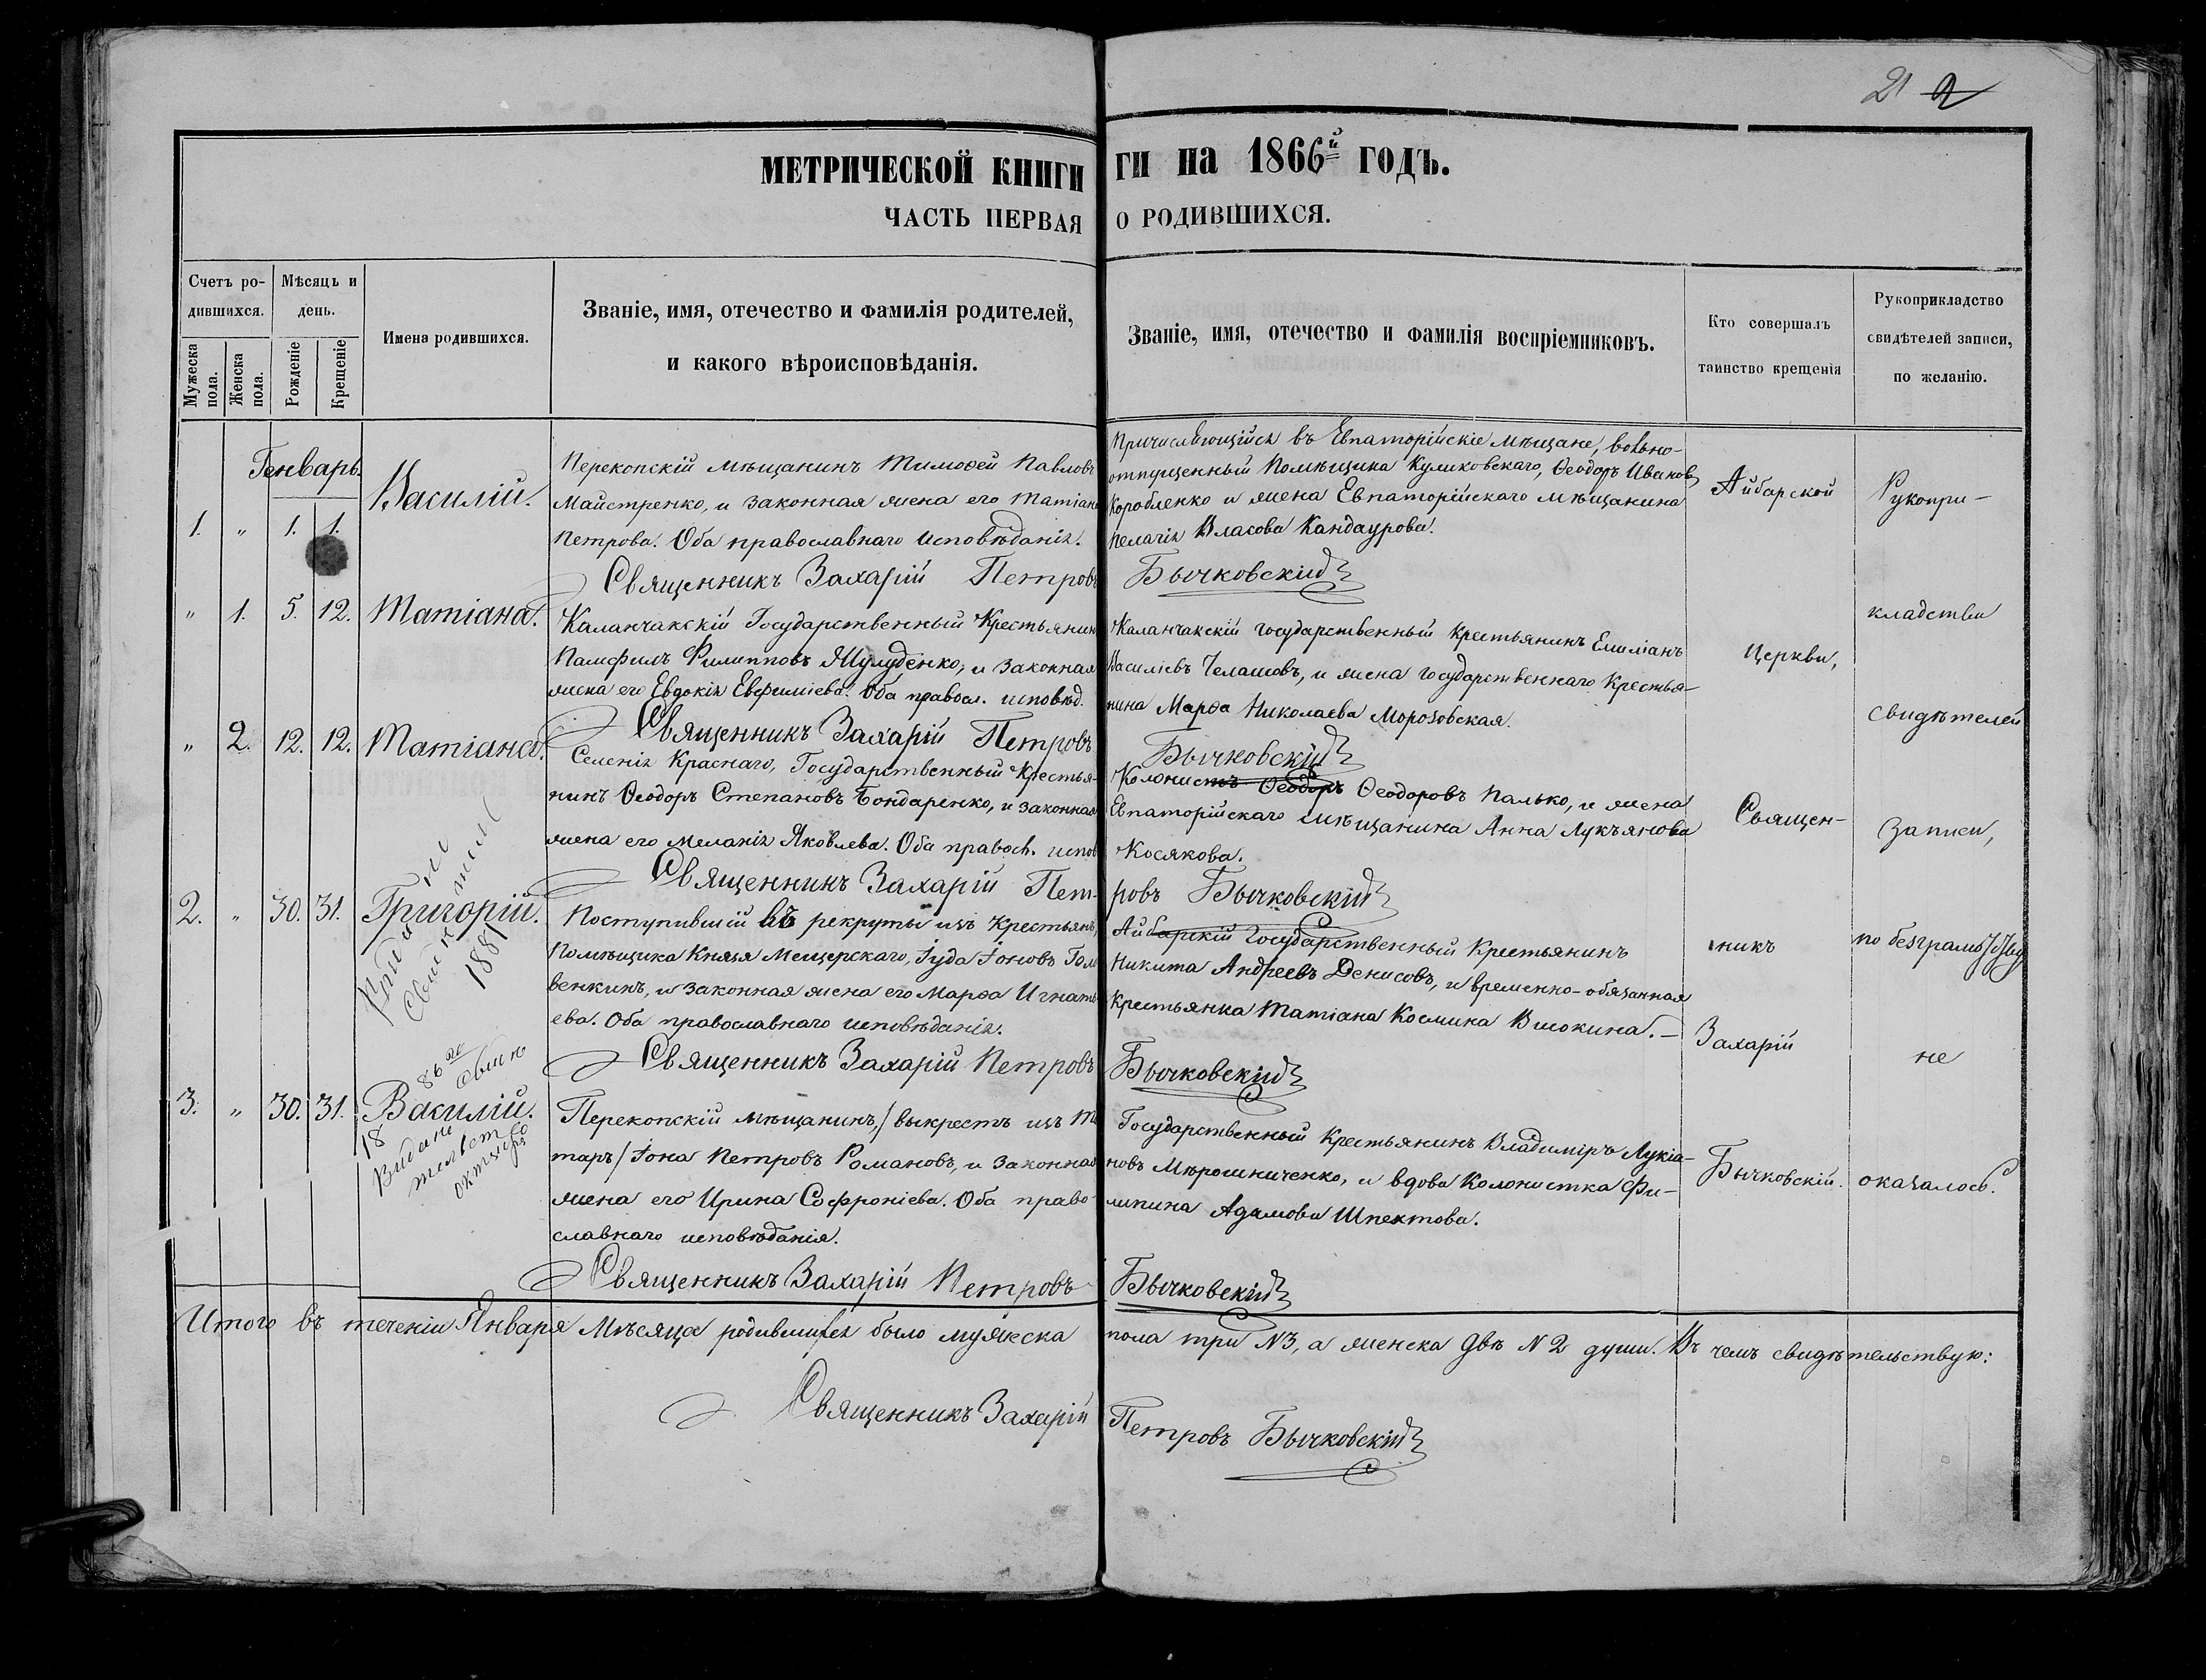 21 2
МЕТРИЧЕСКОЙ КНИГИ
ЧАСТЬ ПЕРВАЯ
ГИ на 1866й ГОДЪ.
О РОДИВШИХСЯ.
Счетъ родившихся.
Мужеска пола.
Женска пола.
Мѣсяцъ и день.
Рожденіе
Крещеніе
Имена родившихся.
Званіе, имя, отечество и фамилія родителей,
и какого вѣроисповѣданія.
Званіе, имя, отечество и фамилія воспріемниковъ.
Кто совершалъ
таинство крещенія
Рукоприкладство
свидѣтелей записи,
по желанію.
Генварь.
1. " 1. 1. Василій.
Перекопскій мѣщанинъ Тимоѳей Павловъ
Майстренко, и законная жена его Татіана
Петрова. Оба православнаго исповѣданія.
Священникъ Захарій Петровъ
Причисляющійся въ Евпаторійскіе мѣщане, вольно-
отпущенный Помѣщика Куликовскаго, Ѳеодоръ Ивановъ
Коробленко и жена Евпаторійскаго мѣщанина
Пелагія Власова Кандаурова.
Бычковскій
" 1. 5. 12. Татіана.
Каланчакскій Государственный Крестьянинъ
Памфилъ Филипповъ Шулуденко, и законная
жена его Евдокія Евфиміева. Оба правосл. исповѣд.
Священникъ Захарій Петровъ
Каланчакскій Государственный Крестьянинъ Емиліанъ
Василіевъ Челашовъ, и жена Государственнаго Крестья-
нина Марѳа Николаева Морозовская.
Бычковскій
" 2. 12. 12. Татіана.
Селенія Краснаго, Государственный Крестья-
нинъ Ѳеодоръ Степановъ Бондаренко, и законная
жена его Меланія Яковлева. Оба правосл. испов
Священникъ Захарій Пет-
Колонистъ Ѳеодоръ Ѳеодоровъ Палько, и жена
Евпаторійскаго мѣщанина Анна Лукъянова
Косякова.
ровъ Бычковскій
2. " 30. 31. Григорій.
1881
Поступившій въ рекруты изъ Крестьянъ,
Помѣщика Князя Мещерскаго, Іуда Іоновъ Гол
венкинъ, и законная жена его Марѳа Игнать
ева. Оба православнаго исповѣданія.
Священникъ Захарій Петровъ
Айбарскій Государственный Крестьянинъ
Никита Андреевъ Денисовъ, и временно-обязанная
Крестьянка Татіана Космина Високина.—
Бычковскій
3. " 30. 31. Василій.
18
Перекопскій мѣщанинъ,/выкрестъ изъ Та
таръ/ Іона Петровъ Романовъ, и законная
жена его Ирина Софроніева. Оба право-
славнаго исповѣданія.
Священникъ Захарій Петровъ
Государственный Крестьянинъ Владиміръ Лукіа-
новъ Мѣрошниченко, и вдова Колонистка Фи-
липина Адамова Шпектова.
Бычковскій
Айбарской
Церкви,
Священ-
никъ
Захарій
Бычковскій.
Рукопри-
кладства
свидѣтелей
записи,
по безграмотству
не
оказалось.
Итого въ теченіи Января Мѣсяца родившихся было мужеска
пола три №3, а женска двѣ №2 души. Въ чемъ свидѣтельствую:
Священникъ Захарій
Петровъ Бычковскій